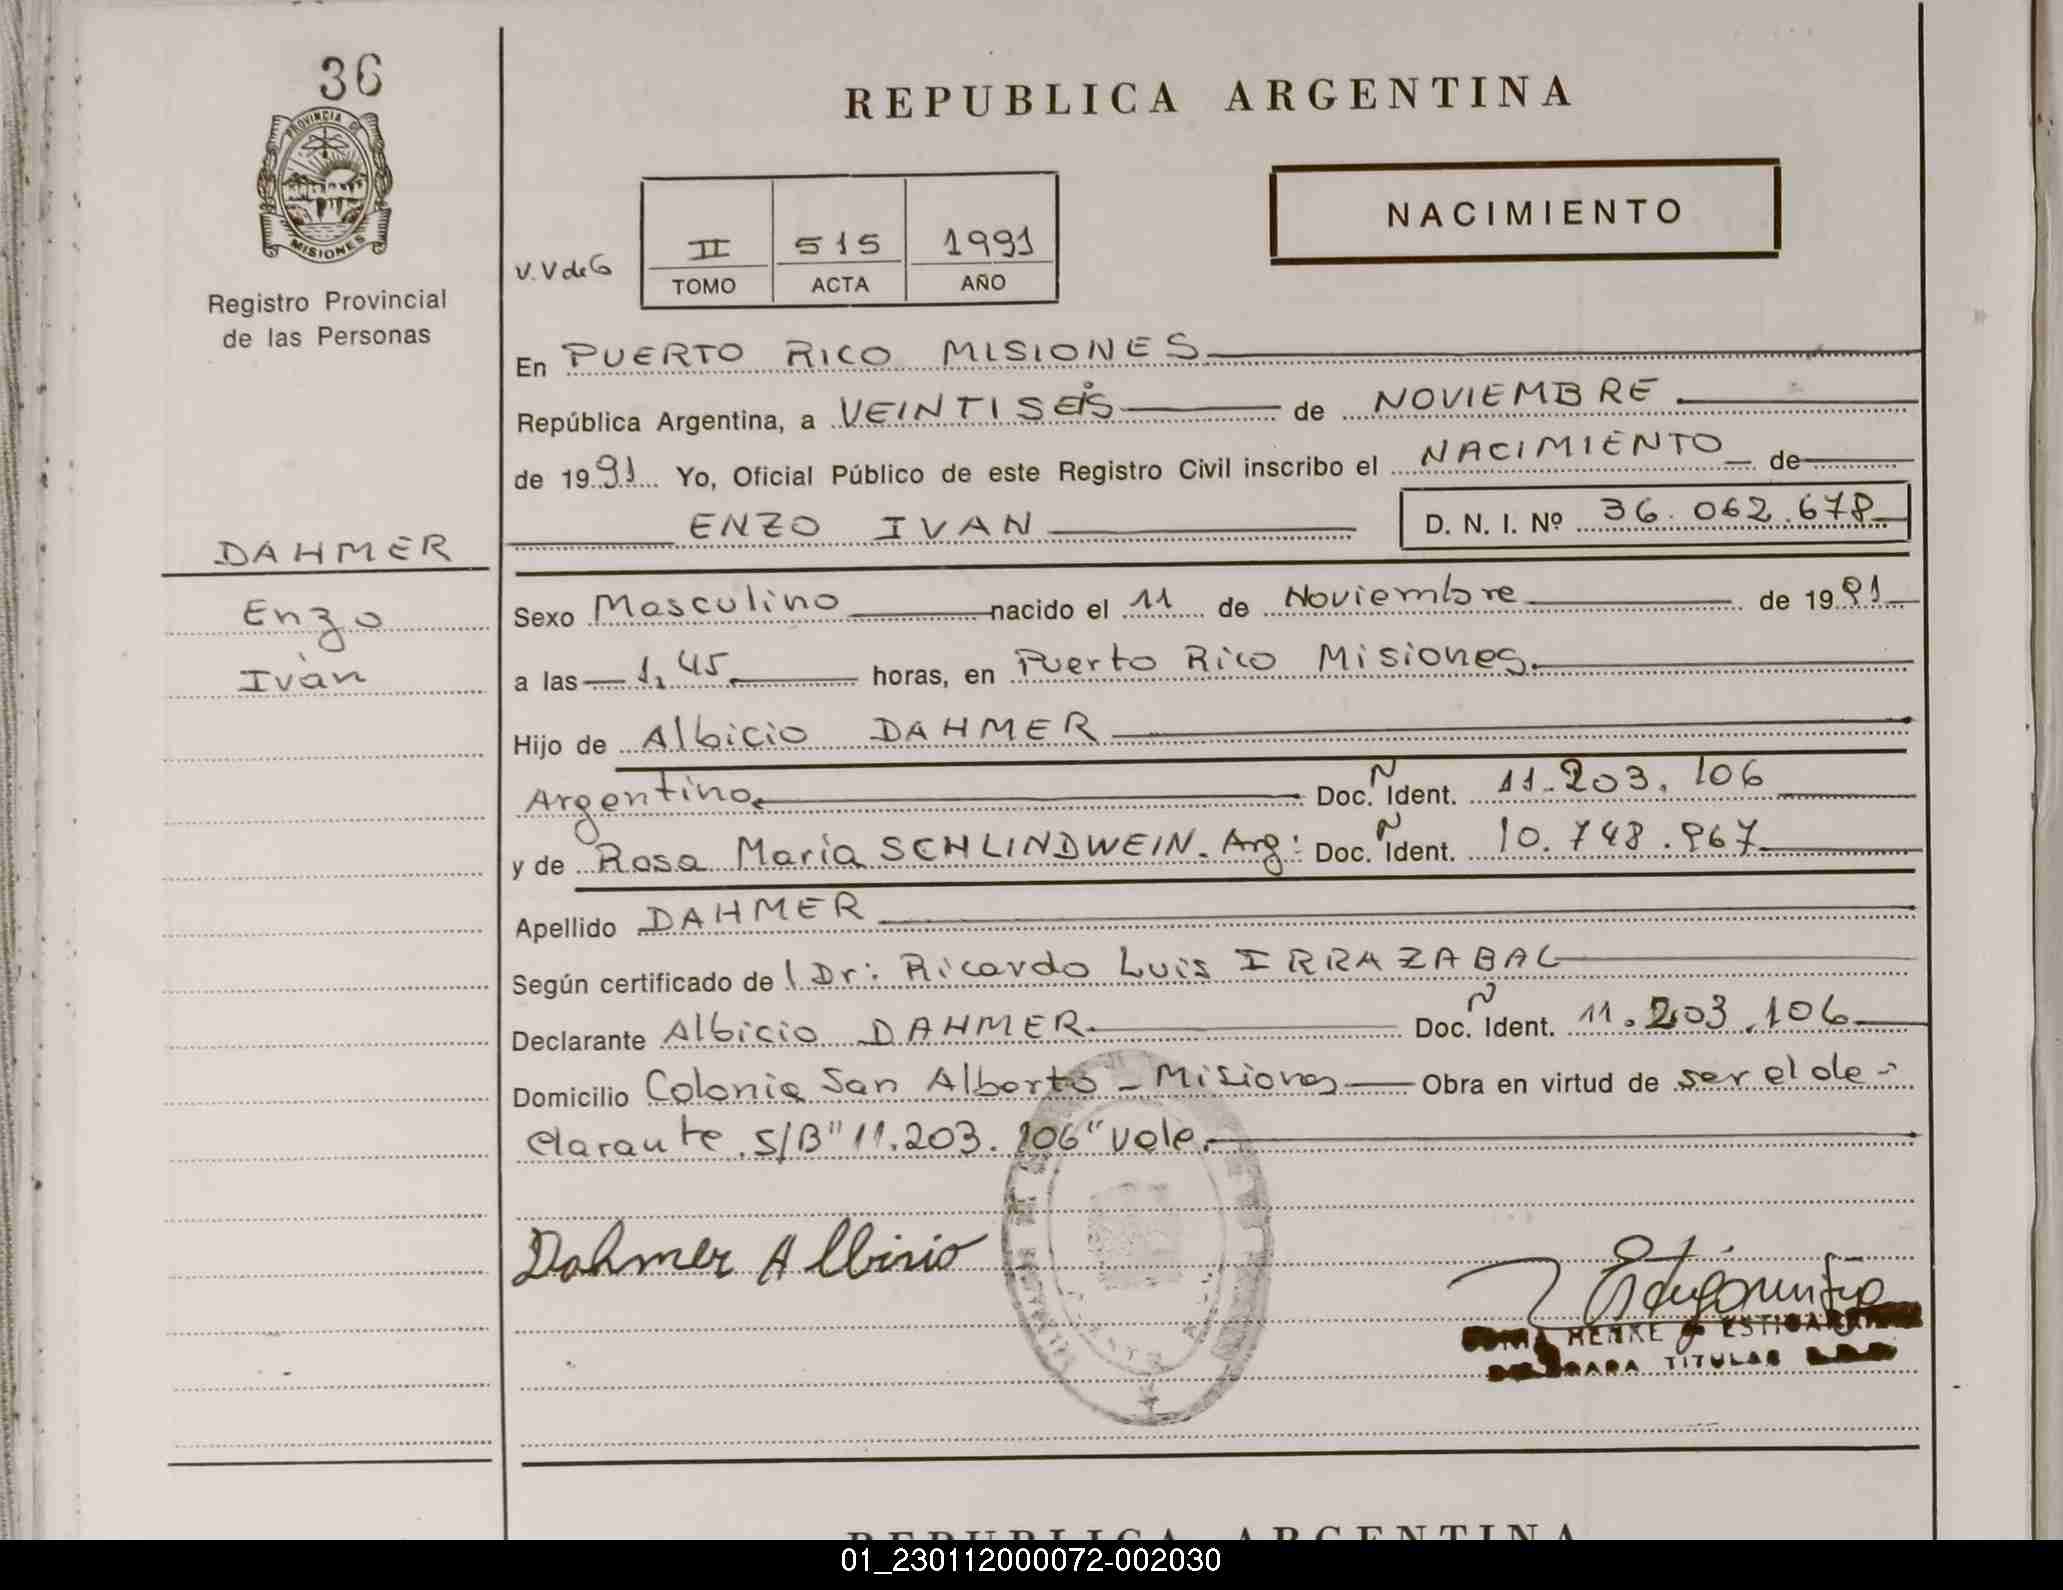 36
PROVINCIA DE
MISIONES
Registro Provincial
de las Personas
REPUBLICA ARGENTINA
NACIMIENTO
V.V de G
II 515 1991
TOMO ACTA AÑO
En PUERTO RICO MISIONES
República Argentina, a VEINTISEIS de NOVIEMBRE
de 1991 Yo, Oficial Público de este Registro Civil inscribo el NACIMIENTO de
ENZO IVAN D. N. I. Nº 36.062.678
DAHMER
Enzo
Iván
Sexo Masculino nacido el 11 de Noviembre de 1991
a las 1,45 horas, en Puerto Rico Misiones.
Hijo de Albicio DAHMER
Argentino. Doc. Ñ Ident. 11.203.106
y de Rosa María SCHLINDWEIN. Arg: Doc. Ñ Ident. 10.748.967
Apellido DAHMER
Según certificado de l Dr: Ricardo Luis IRRAZABAL
Declarante Albicio DAHMER. Doc. Ñ Ident. 11.203.106
Domicilio Colonia San Alberto - Misiones Obra en virtud de ser el de-
clarante. S/B "11.203.106" Vale.
Dahmer Albisio
HENKE ESTIGARRIBIA
TITULAR
REPUBLICA ARGENTINA
01_230112000072-002030